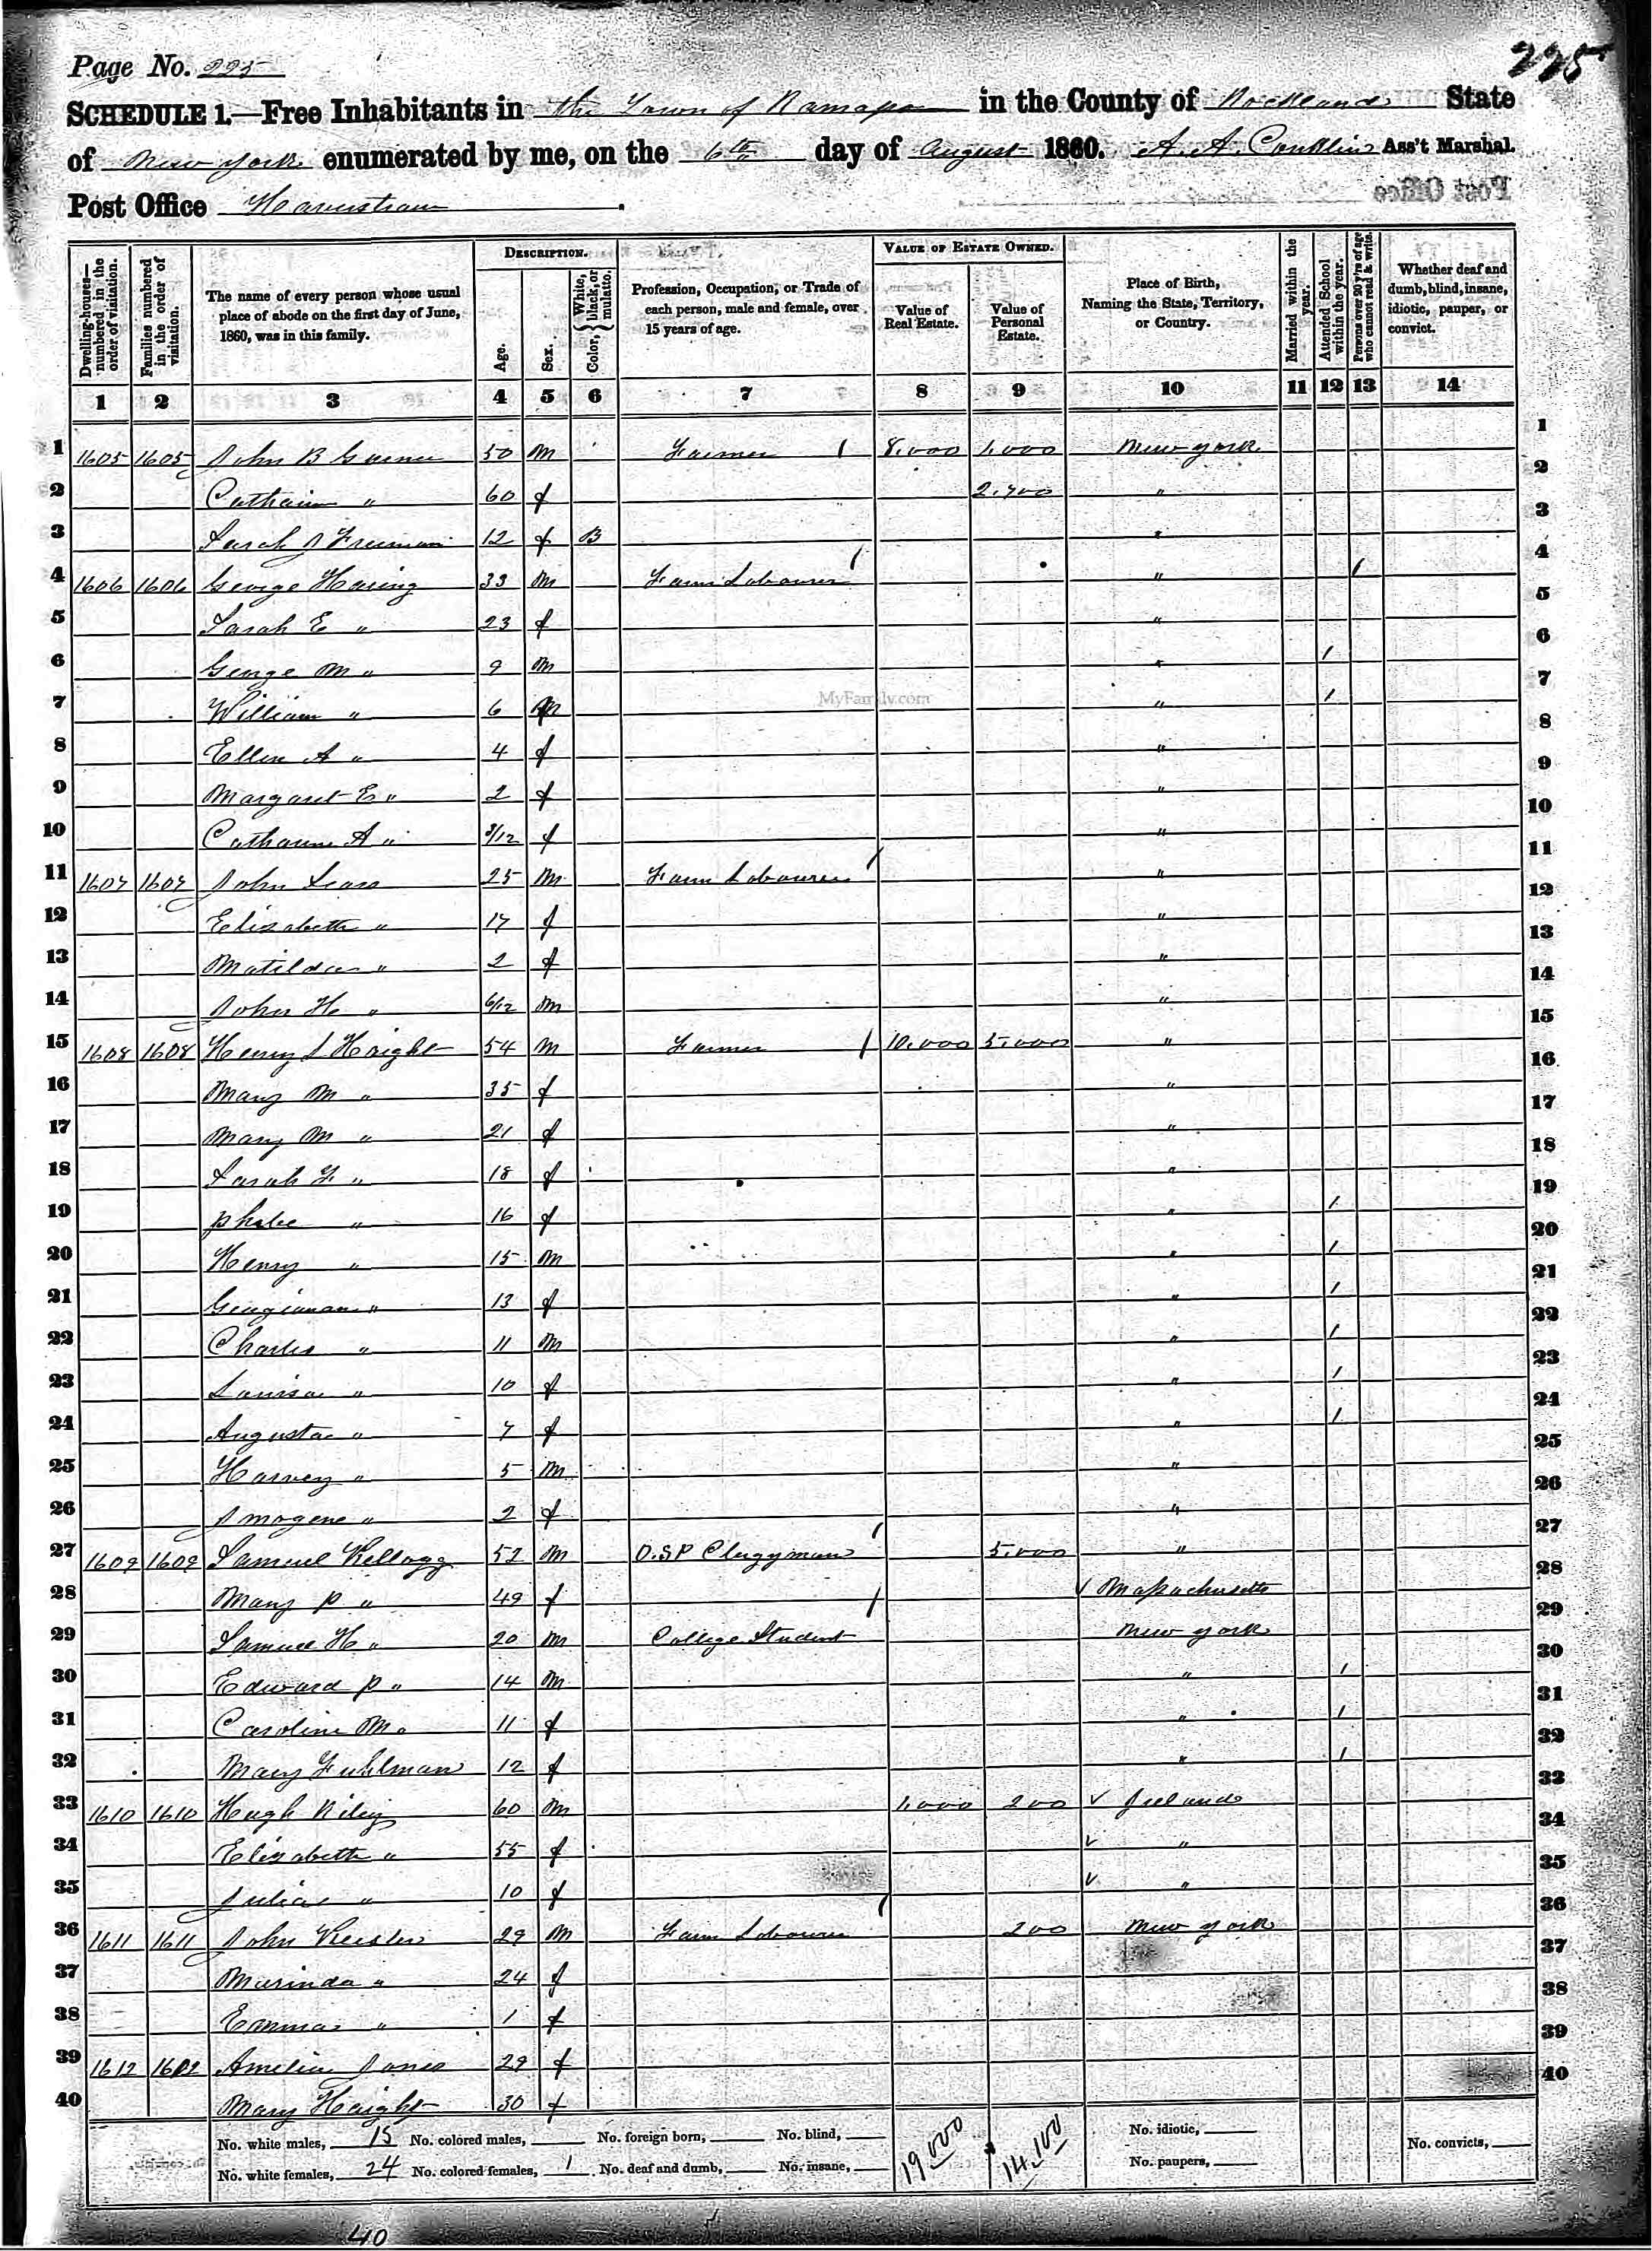 Page No. 225
225
SCHEDULE 1.—Free Inhabitants in the Town of Ramapo in the County of Rockland State
of New York enumerated by me, on the 6th day of August 1860. A. A. Conklin Ass't Marshal.
Post Office Haverstraw
Post Office
DESCRIPTION. VALUE OF ESTATE OWNED.
Dwelling-houses—numbered in the order of visitation. Families numbered in the order of visitation. The name of every person whose usual place of abode on the first day of June, 1860, was in this family. Age. Sex. Color, White, black, or mulatto. Profession, Occupation, or Trade of each person, male and female, over 15 years of age. Value of Real Estate. Value of Personal Estate. Place of Birth, Naming the State, Territory, or Country. Married within the year. Attended School within the year. Persons over 20 y'rs of age who cannot read & write. Whether deaf and dumb, blind, insane, idiotic, pauper, or convict.
1 2 3 4 5 6 7 8 9 10 11 12 13 14
1 1605 1605 John B 50 m Farmer 8,000 1,000 New York 1
2 Catharine " 60 f " 2
3 Sarah J Freeman 12 f B " 3
4 1606 1606 George Haring 33 m Farm Labourer " / 4
5 Sarah E " 23 f " 5
6 George M " 9 m " / 6
7 William " 6 m " / 7
MyFamily.com
8 Ellen A " 4 f " 8
9 Margaret E " 2 f " 9
10 Catharine A " 3/12 f " 10
11 1607 1607 John 25 m Farm Labourer " 11
12 Elizabeth " 17 f " 12
13 Matilda " 2 f " 13
14 John H " 6/12 m " 14
15 1608 1608 Henry S Haight 54 m Farmer 10,000 5,000 " 15
16 Mary M " 35 f " 16
17 Mary M " 21 f " 17
18 Sarah F " 18 f " 18
19 Phebe " 16 f " / 19
20 Henry " 15 m " / 20
21 Georgianna " 13 f " / 21
22 Charles " 11 m " / 22
23 Louisa " 10 f " / 23
24 Augusta " 7 f " / 24
25 Harvey " 5 m " 25
26 Imogene " 2 f " 26
27 1609 1609 Samuel Kellogg 52 m O.S.P Clergyman 5,000 " 27
28 Mary P " 49 f Massachusetts 28
29 Samuel H " 20 m College Student New York 29
30 Edward P " 14 m " / 30
31 Caroline M " 11 f " / 31
32 Mary Fuhlman 12 f " / 32
33 1610 1610 Hugh Riley 60 m 1,000 200 Ireland 33
34 Elizabeth " 55 f " 34
35 Julia " 10 f " 35
36 1611 1611 John 29 m Farm Labourer 200 New York 36
37 Murinda " 24 f 37
38 Emma " 1 f 38
39 1612 1602 Amelia Jones 29 f 39
40 Mary Haight 30 f 40
No. white males, 15 No. colored males, No. foreign born, No. blind, 19,000 14,100 No. idiotic, No. convicts,
No. white females, 24 No. colored females, 1 No. deaf and dumb, No. insane, No. paupers,
40